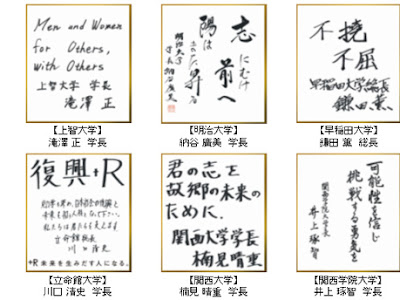 Men and Women
for Others,
with Others
上智大学 学長
滝澤 正
【上智大学】
滝澤 正 学長
志にむけ
前へ
陽はまた昇る
明治大学
学長 納谷廣美
【明治大学】
納谷 廣美 学長
不撓
不屈
早稲田大学総長
鎌田薫
【早稲田大学】
鎌田 薫 総長
復興+R
立命館総長
川口清史
+R 未来を生みだす人になる。
【立命館大学】
川口 清史 学長
君の志を
故郷の未来の
ために.
関西大学学長
楠見晴重
【関西大学】
楠見 晴重 学長
可能性を信じ
挑戦する勇気を
関西学院大学
学長
井上琢智
【関西学院大学】
井上 琢智 学長